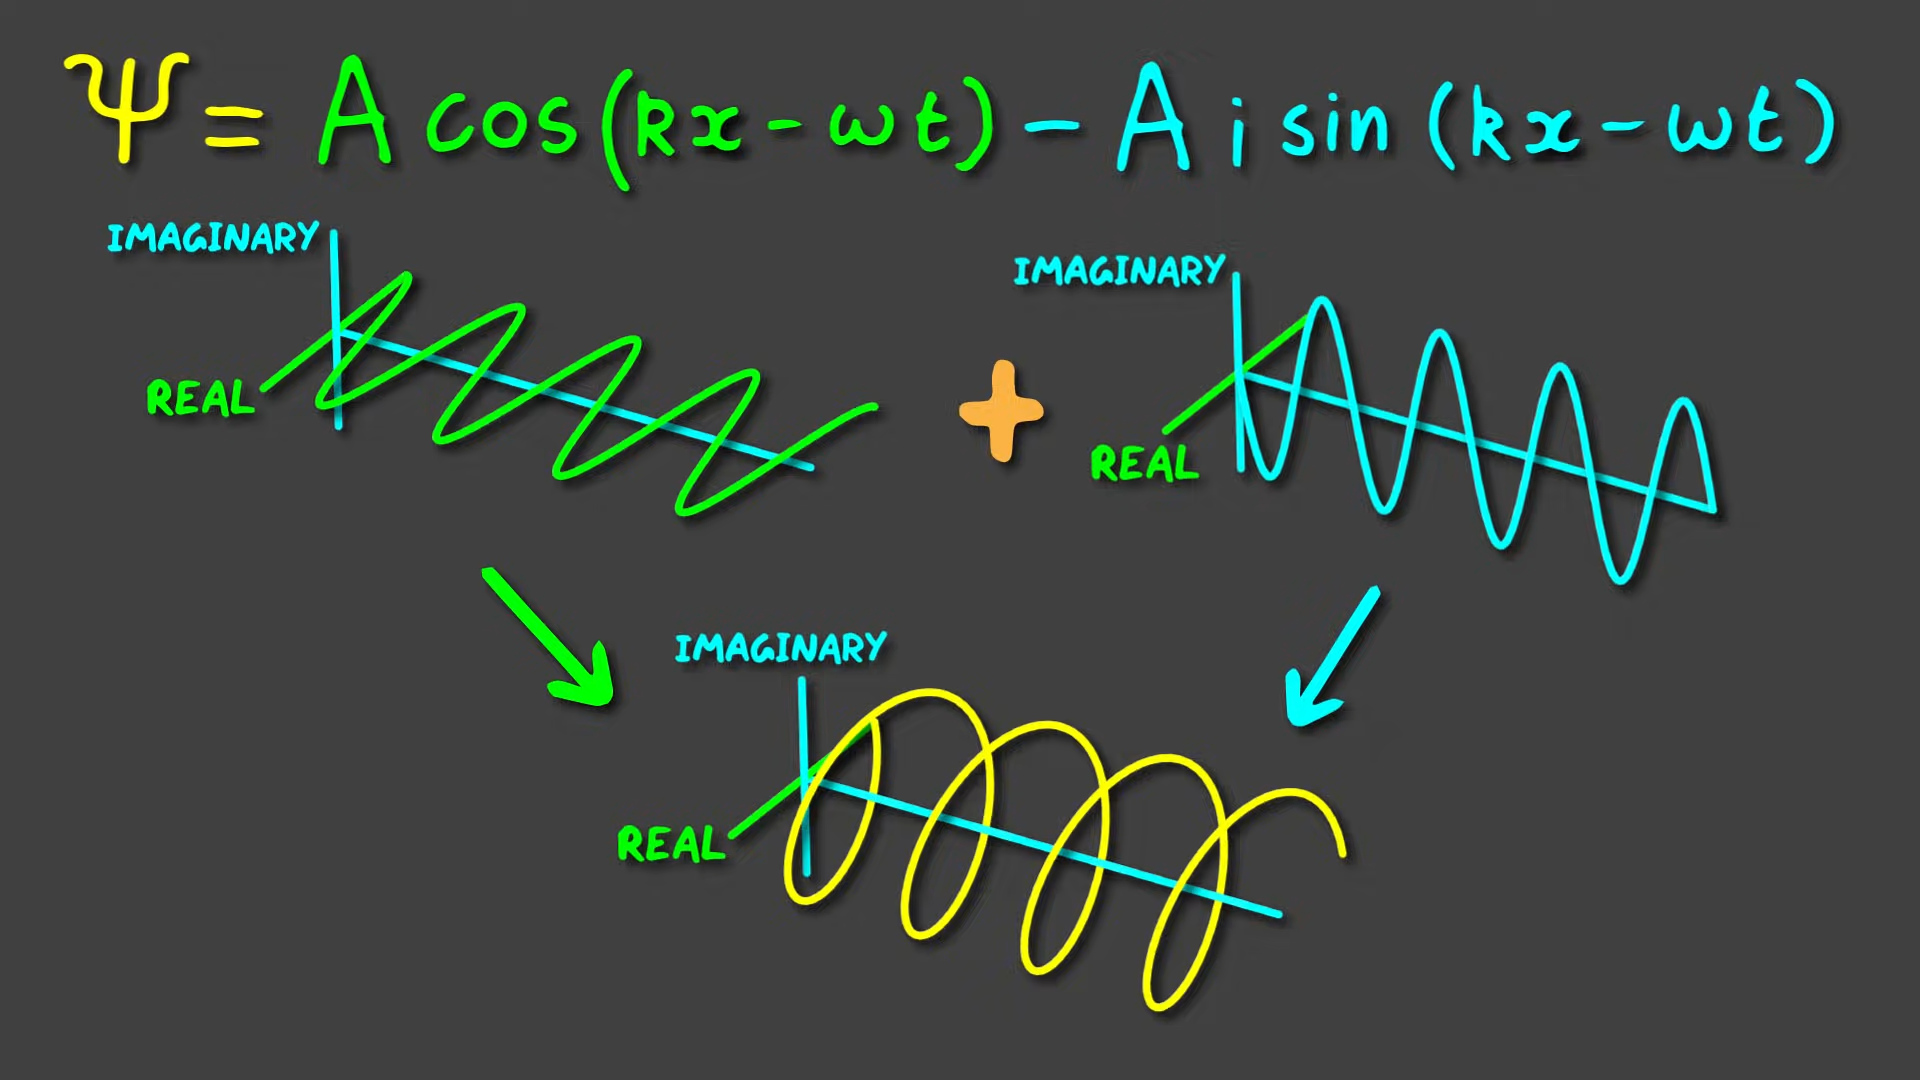 Ψ = A cos(kx - ωt) - A i sin (kx - ωt)
IMAGINARY
IMAGINARY
REAL
REAL
IMAGINARY
REAL